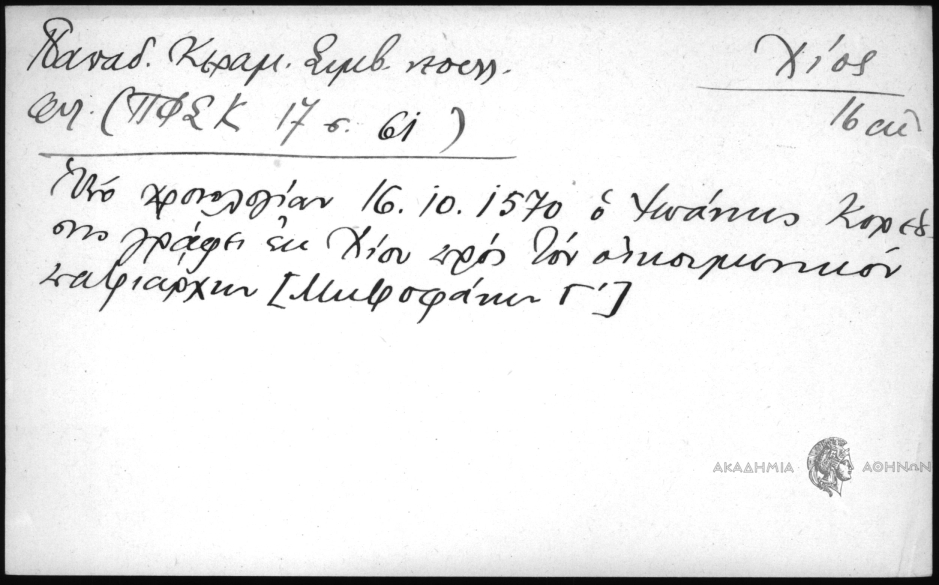 Παπαδ. Κεραμ. Συμβ.
Χίος
(ΠΦΣΚ 17 σ. 61)
16 αἰ
Ὑπό χρονολογίαν 16.10.1570 ὁ Ἰωάννης Κορέσ-
σης γράφει ἐκ Χίου πρός τόν οἰκουμενικόν
πατριάρχην [Μητροφάνην Γ']
ΑΚΑΔΗΜΙΑ ΑΘΗΝΩΝ